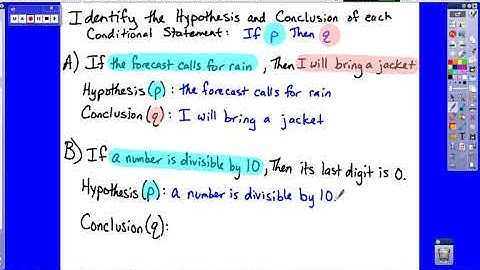 Identify the Hypothesis and Conclusion of each
Conditional Statement: If p Then q
A) If the forecast calls for rain, Then I will bring a jacket
Hypothesis (p): the forecast calls for rain
Conclusion (q): I will bring a jacket
B) If a number is divisible by 10, Then its last digit is 0.
Hypothesis (p): a number is divisible by 10.
Conclusion (q):